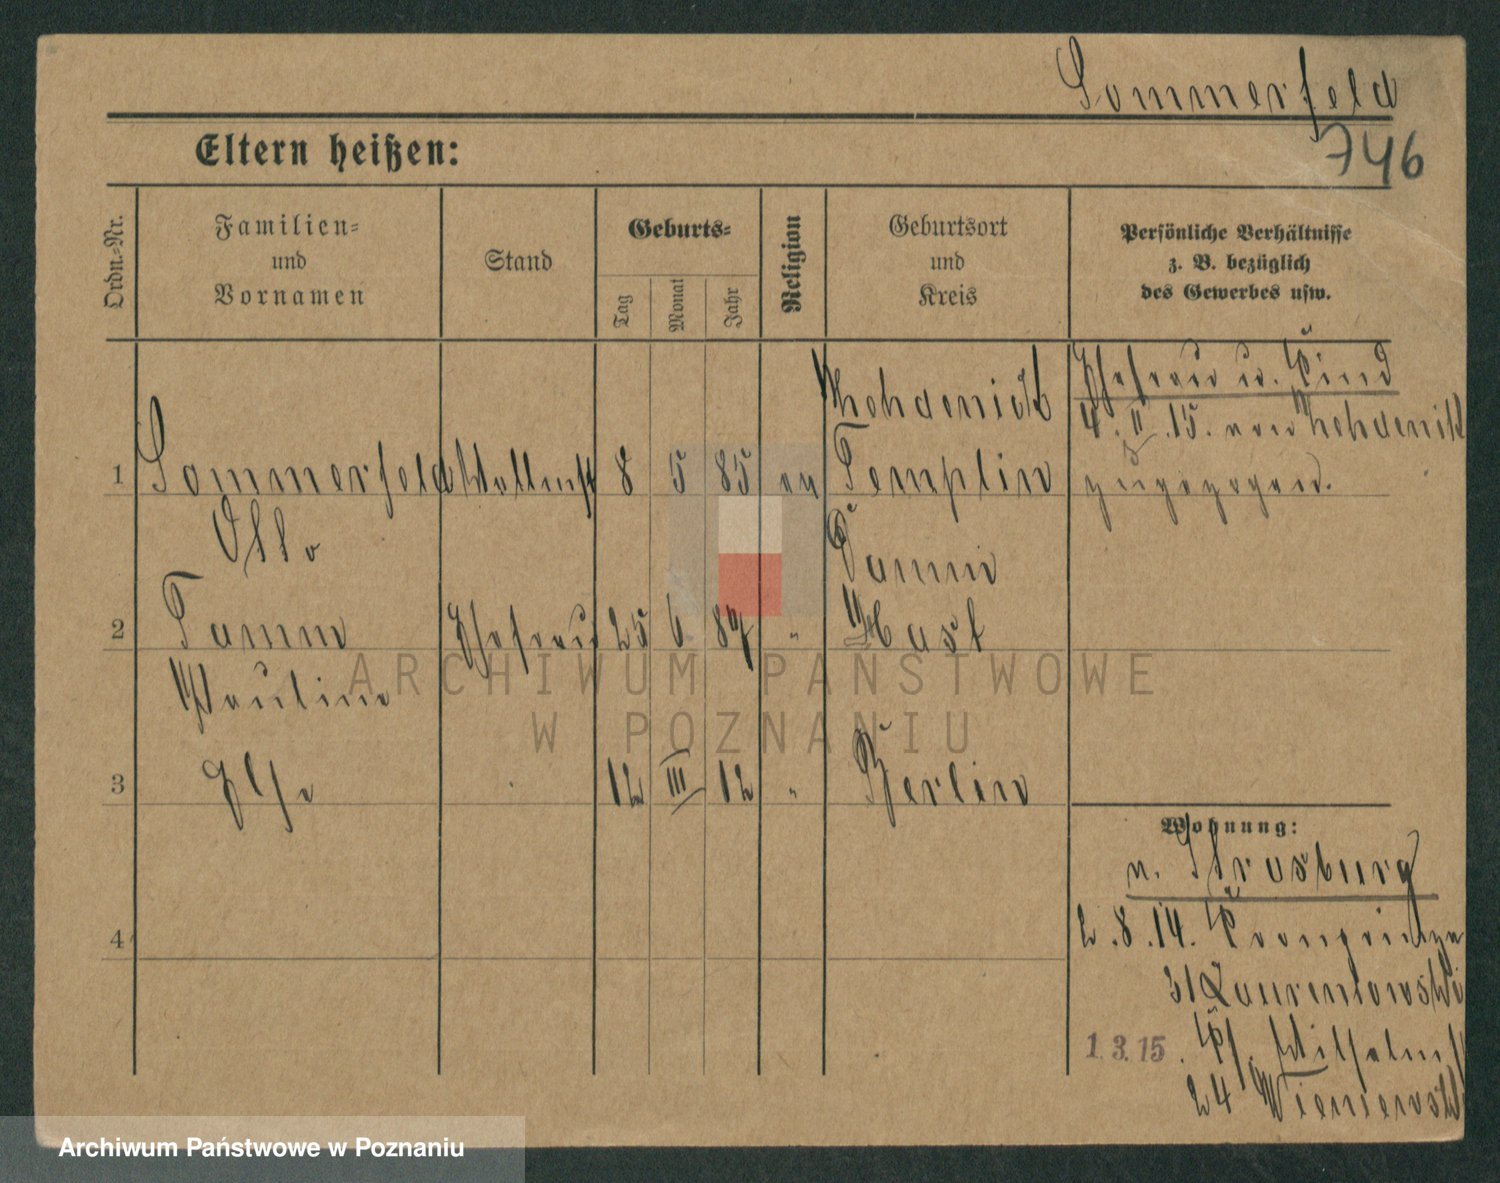 Sommerfeld
746
Eltern heißen:
Ordn.=Nr.
Familien=
und
Vornamen
Stand
Geburts=
Tag
Monat
Jahr
Religion
Geburtsort
und
Kreis
Persönliche Verhältnisse
z. B. bezüglich
des Gewerbes usw.
Ehefrau u. Kind
4. II. 15. von Zehdenick
zugezogen.
Zehdenick
1 Sommerfeld 8 5 85 ev Templin
Otto
Damm
2 Tamm Ehefrau 25 6 87 "
Pauline
3 Else 12 III 12 " Berlin
4
Wohnung:
n. Strasburg
2.8.14. Kronprinzen
31 Laurentowski
1.3.15.
24
ARCHIWUM PAŃSTWOWE
W POZNANIU
Archiwum Państwowe w Poznaniu